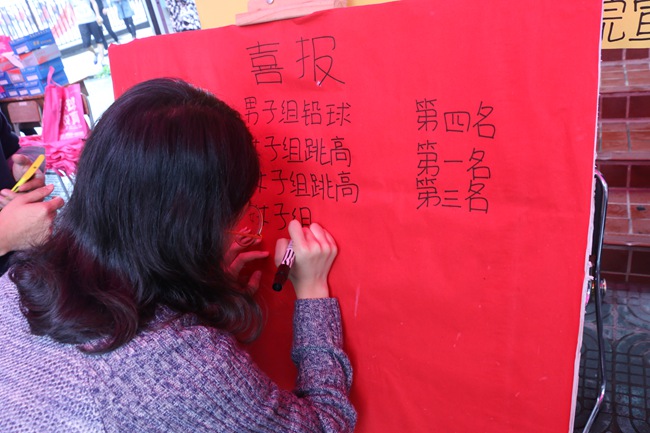 喜报
男子组铅球 第四名
女子组跳高 第一名
女子组跳高 第三名
女子组